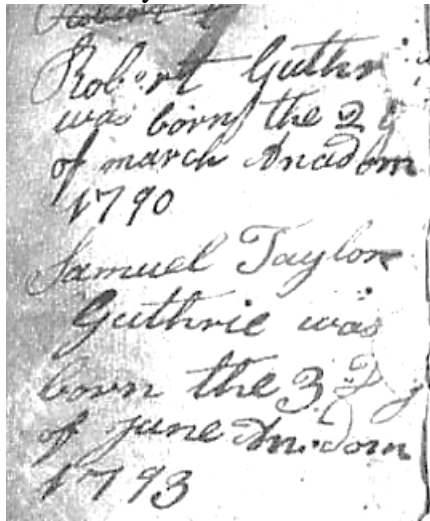 Robert
Robert Guthr
was born the 28
of march Anadom
1790
Samuel Taylor
Guthrie was
born the 3 D
of june An.dom
1793